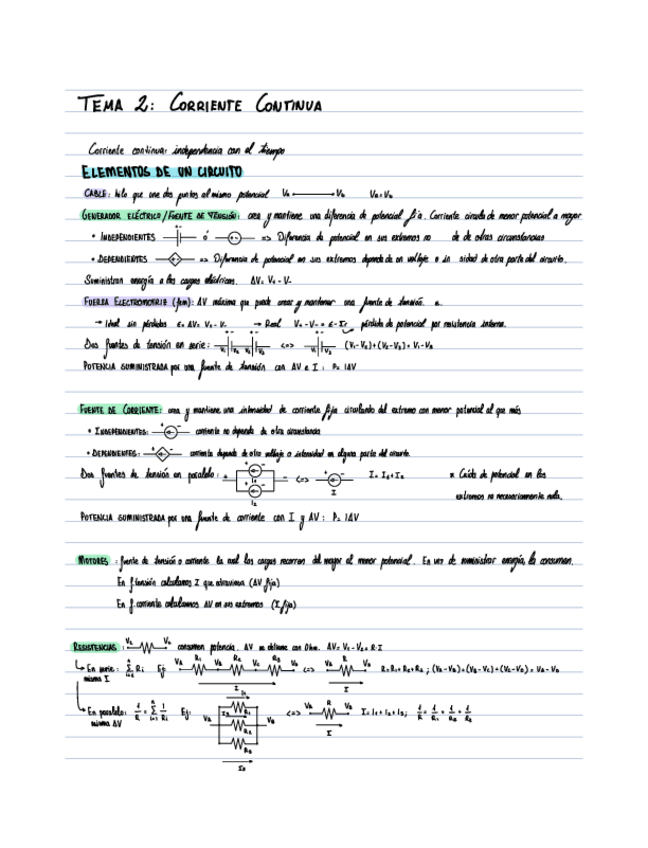 TEMA 2: CORRIENTE CONTINUA
Corriente continua: independencia con el tiempo
ELEMENTOS DE UN CIRCUITO
CABLE: hilo que une dos puntos al mismo potencial Va Vb Va=Vb
GENERADOR ELÉCTRICO/FUENTE DE TENSIÓN: crea y mantiene una diferencia de potencial fija. Corriente circula de menor potencial a mayor
• INDEPENDIENTES ó => Diferencia de potencial en sus extremos no de de otras circunstancias
• DEPENDIENTES => Diferencia de potencial en sus extremos depende de un voltaje o in sidad de otra parte del circuito.
Suministran energía a las cargas eléctricas. ΔV= V+ - V-
FUERZA ELECTROMOTRIZ (fem): ΔV máxima que puede crear y mantener una fuente de tensión. ε.
→ Ideal sin pérdidas ε= ΔV= V+ - V- → Real V+ - V- = ε - Ir pérdida de potencial por resistencia interna.
Dos fuentes de tensión en serie: <=>
POTENCIA SUMINISTRADA por una fuente de tensión con ΔV e I : P= IΔV
FUENTE DE CORRIENTE: crea y mantiene una intensidad de corriente fija circulando del extremo con menor potencial al que más
• INDEPENDIENTES: corriente no depende de otra circunstancia
• DEPENDIENTES: corriente depende de otro voltaje o intensidad en alguna parte del circuito.
Dos fuentes de tensión en paralelo: I1 I2 <=> I I= I1+I2 * Caída de potencial en los
extremos no necesariamente nula.
POTENCIA SUMINISTRADA por una fuente de corriente con I y ΔV : P= IΔV
MOTORES : fuente de tensión o corriente la cual las cargas recorren del mayor al menor potencial. En vez de suministrar energía, la consumen.
En f.tensión calculamos I que atraviesa (ΔV fija)
En f.corriente calculamos ΔV en sus extremos (I fija)
RESISTENCIAS: consumen potencia. ΔV se obtiene con Ohm. ΔV= V1 - V2 = R·I
En serie: Σ Ri Ej: VA R1 VB R2 VC R3 VD <=> VA R VD R=R1+R2+R3 ; (VA-VB)+(VB-VC)+(VC-VD) = VA-VD
misma I I I
En paralelo: 1/R = Σ 1/Ri Ej: VA VB <=> VA R VB I= I1+I2+I3; 1/R = 1/R1 + 1/R2 + 1/R3
mismo ΔV I
I3